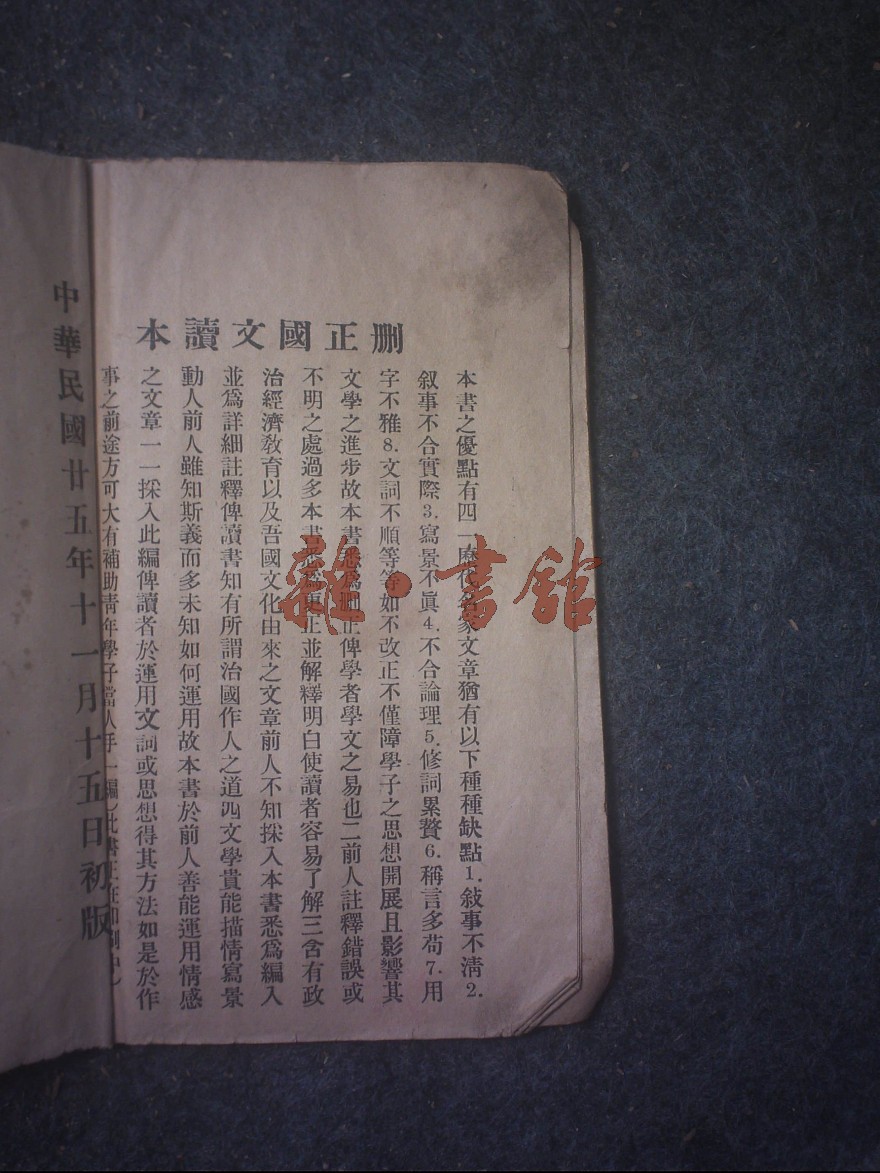 删正國文讀本
本書之優點有四一歷代名家文章猶有以下種種缺點1.敍事不淸2.
敍事不合實際3.寫景不眞4.不合論理5.修詞累贅6.稱言多苟7.用
字不雅8.文詞不順等等如不改正不僅障學子之思想開展且影響其
文學之進步故本書悉爲删正俾學者學文之易也二前人註釋錯誤或
不明之處過多本書悉爲更正並解釋明白使讀者容易了解三含有政
治經濟敎育以及吾國文化由來之文章前人不知採入本書悉爲編入
並爲詳細註釋俾讀書知有所謂治國作人之道四文學貴能描情寫景
動人前人雖知斯義而多未知如何運用故本書於前人善能運用情感
之文章一一採入此編俾讀者於運用文詞或思想得其方法如是於作
事之前途方可大有補助靑年學子當人手一編(此書正在印刷中)
中華民國廿五年十一月十五日初版
雜·書館